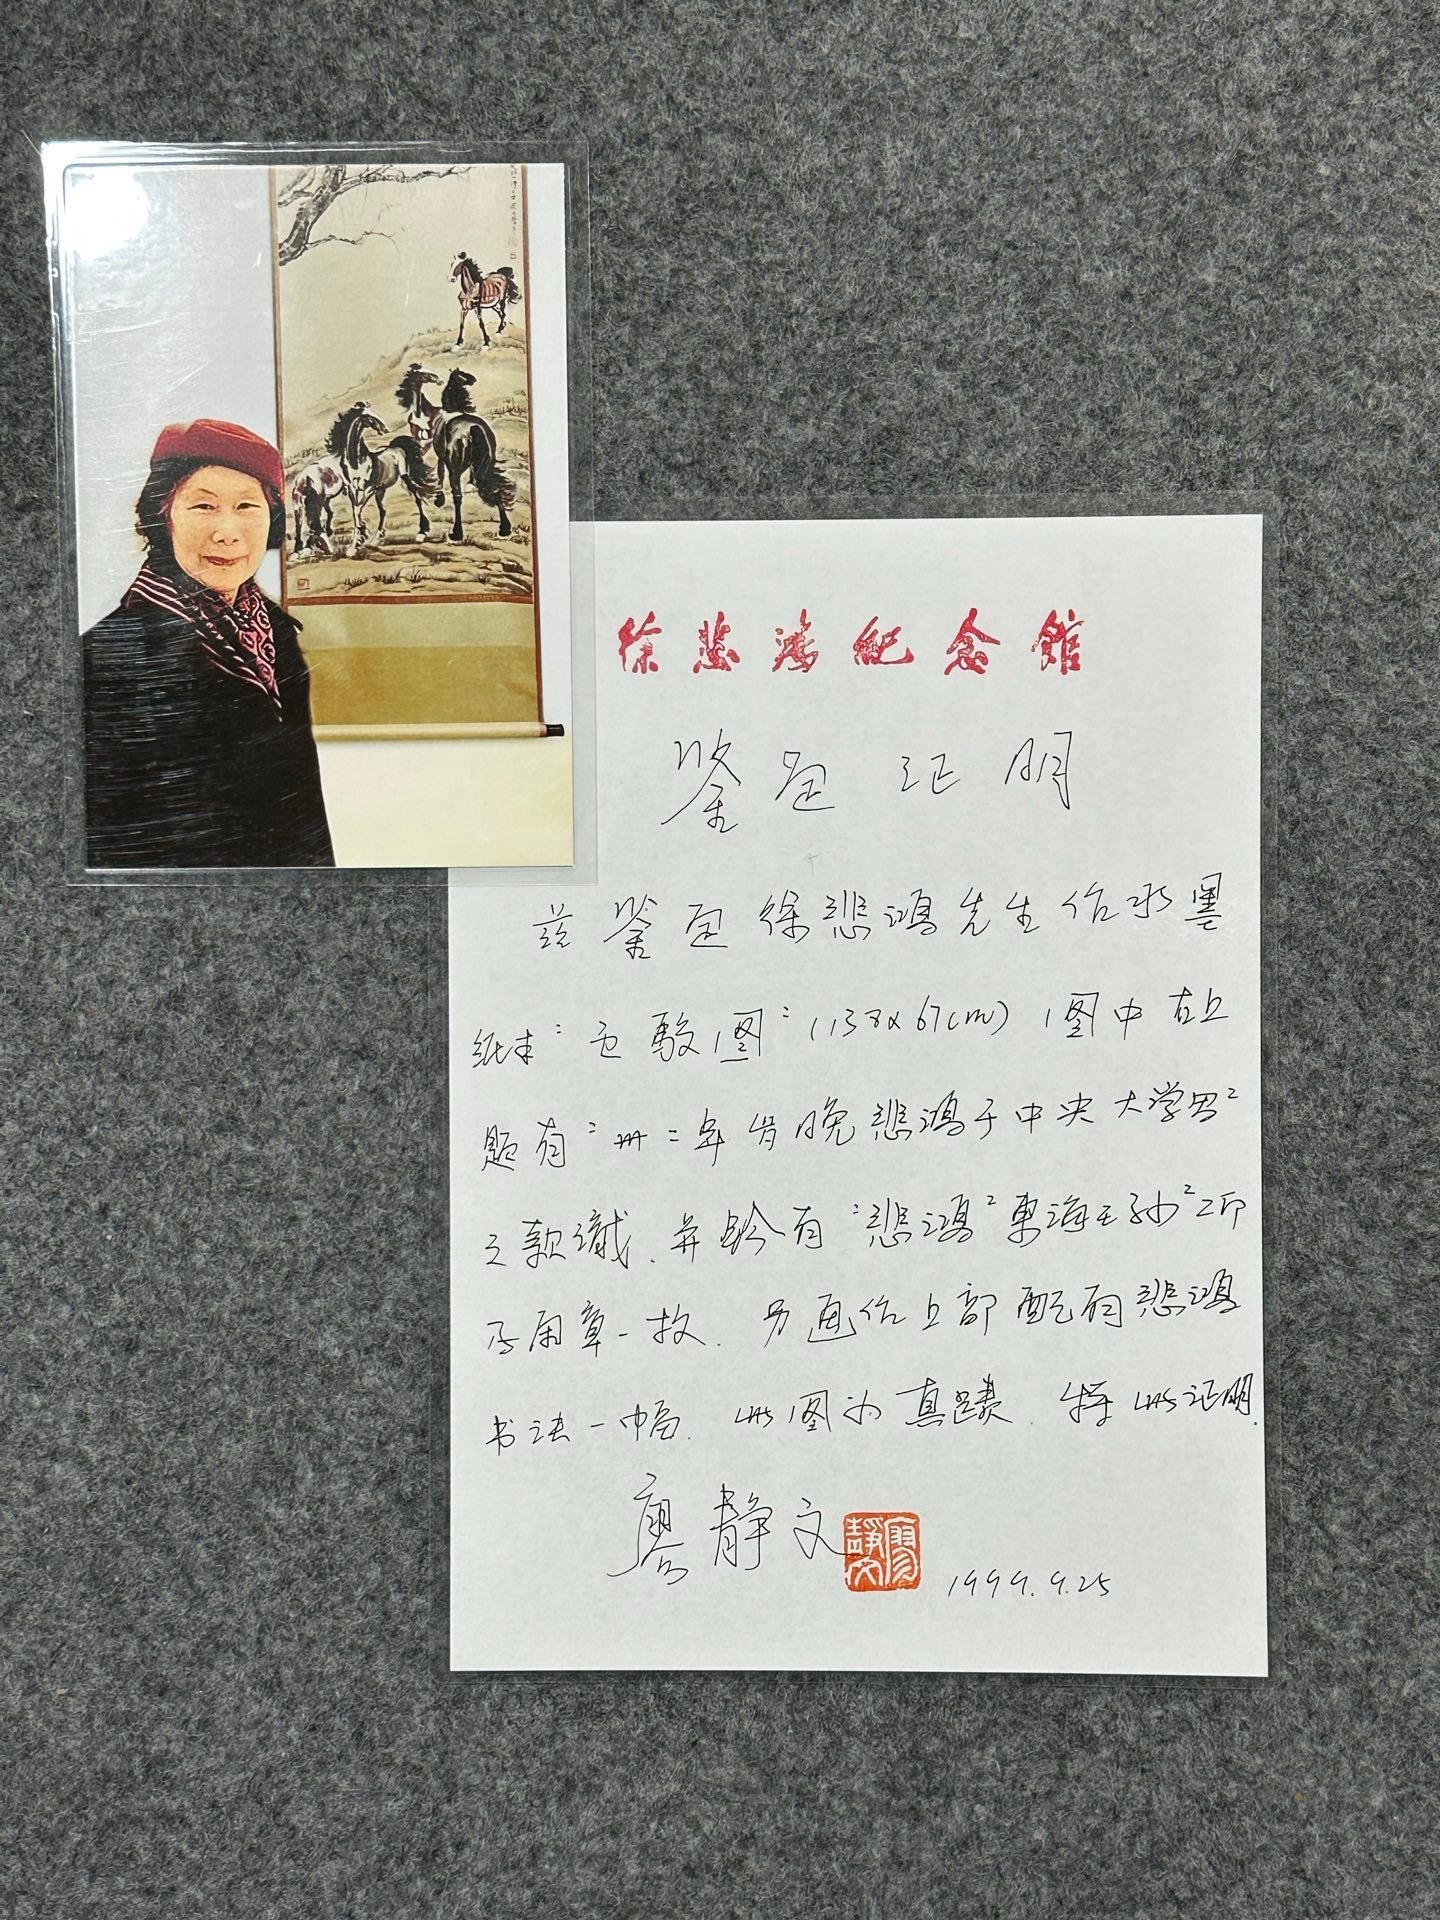 徐悲鸿纪念馆
鉴定证明
兹鉴定徐悲鸿先生作水墨
纸本"五骏图"(138x67cm)图中右上
题有"卅二年岁晚悲鸿于中央大学"
之款识.并钤有"悲鸿"東海王孙"二印
用章一枚.另画作上部配有悲鸿
书法一幅.此图为真蹟.特此证明.
廖静文
廖靜文
1999.9.25